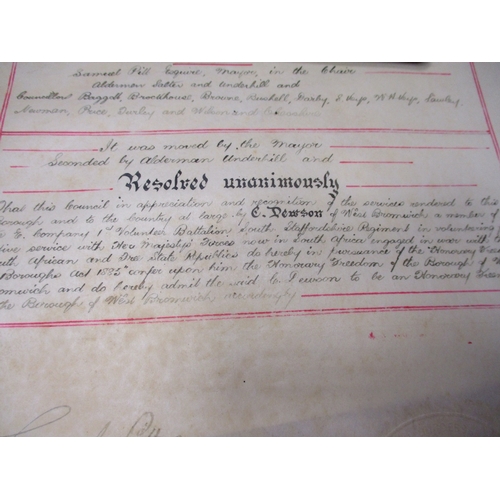 Samuel Pitt Esquire, Mayor, in the Chair
Aldermen Salter and Underhill and
Councillors Baggott, Brockhouse, Browne, Bushell, Darby, S. Keys, W H Keys, Lawley,
Norman, Price, and
It was moved by the Mayor
Seconded by Alderman Underhill and
Resolved unanimously
That this Council in appreciation and recognition of the services rendered to this
Borough and to the Country at large by C. Dewson of West Bromwich a member of
E. Company 1st Volunteer Battalion, South Staffordshire Regiment in volunteering for
tive service with Her Majestys Forces now in South Africa engaged in war with the
outh African and Free State Republics do hereby in pursuance of the Honorary
Boroughs Act 1885 confer upon him the Honorary Freedom of the Borough of W
omwich and do hereby admit the said C. Dewson to be an Honorary Free
the Borough of West Bromwich accordingly